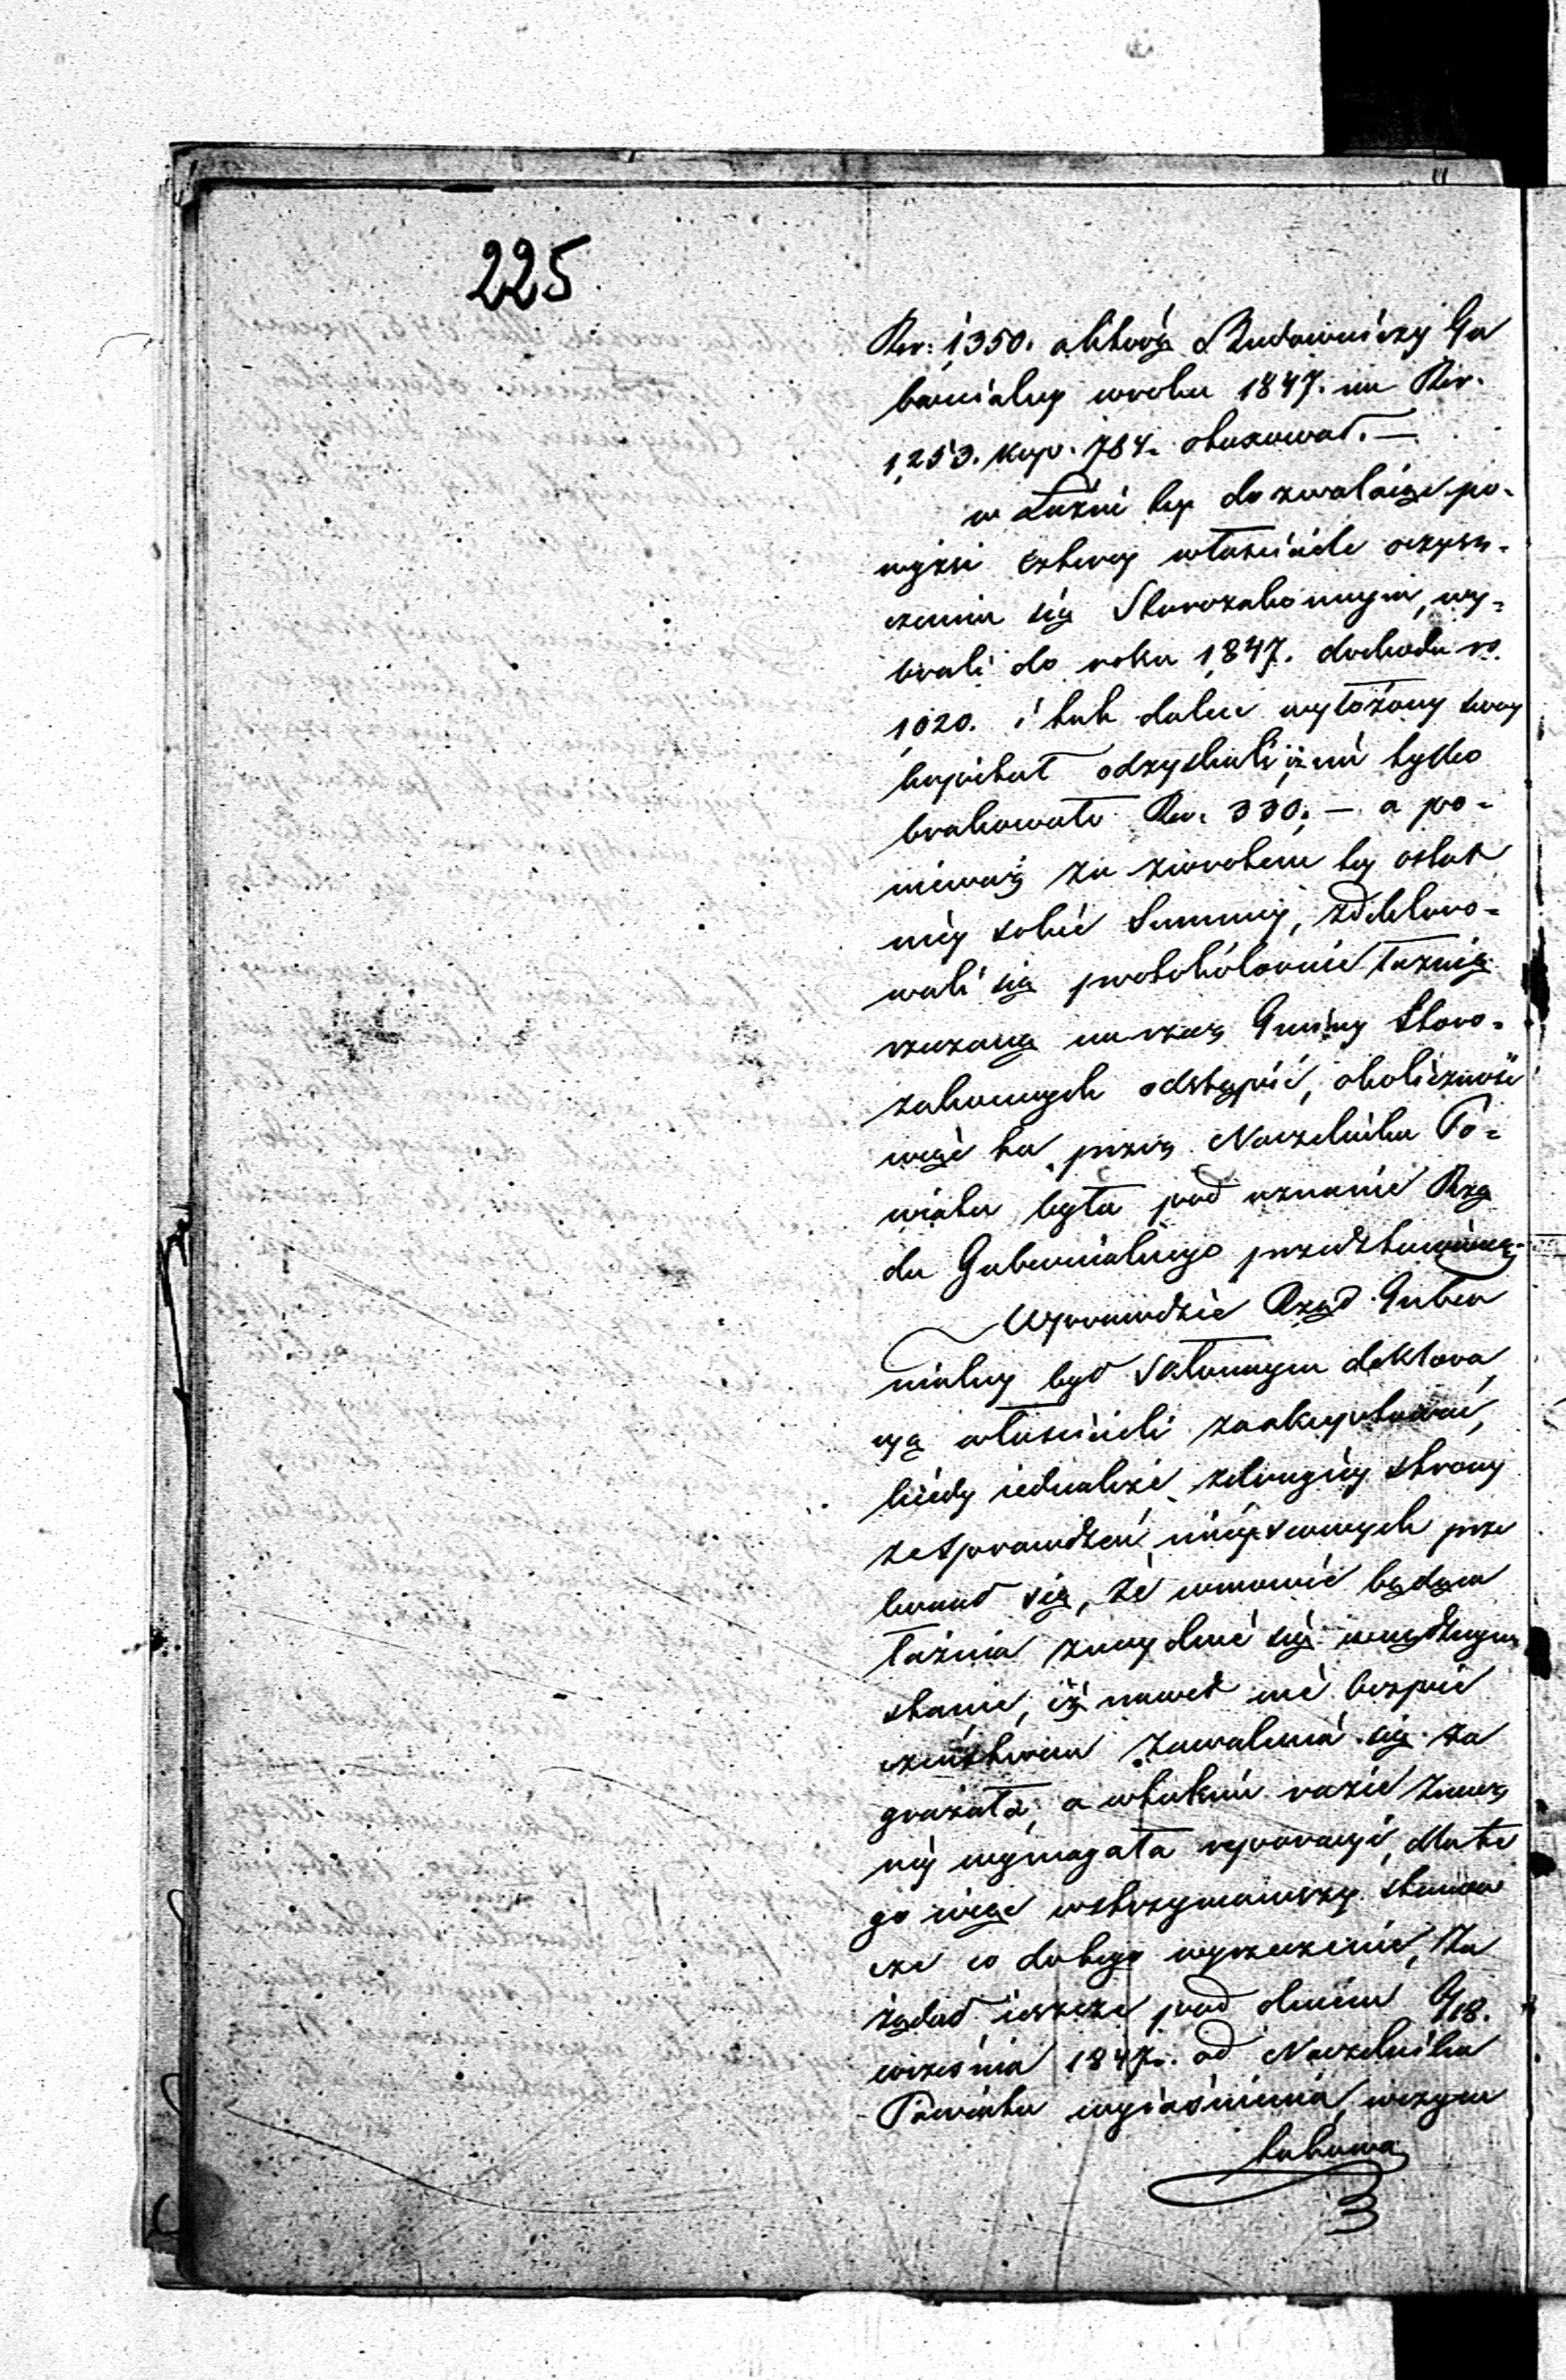 225
Rsr: 1350. a którą Budowniczy Gu
bernialny w roku 1847. na Rsr.
1,253. kop. 784. otaxował. —
w Łaźni tey dozwalaiąc po-
wyżsi czterej właściciele oczysz-
czenia się Starozakonnym, wy-
brali do roku 1847. dochodu rs.
1,020. i tak dalece wyłożony swoy
kapitał odzyskali, iż im tylko
brakowało Rsr. 330. — a po-
nieważ za zwrotem tey ostat
niey sobie Summy, zdeklaro-
wali się protokólarnie łaźnię
rzeczoną na rzecz Gminy Staro-
zakonnych odstąpić, okoliczność
więc ta przez Naczelnika Po-
wiatu była pod uznanie Rzą
du Gubernialnego przedstawioną.
Wprawdzie Rząd Guber
nialny był skłonnym deklara
cyą właścicieli zaakceptować,
kiedy iednakże z drugiey strony
ze sprawdzeń mieyscowych prze
konał się, że w mowie będąca
łaźnia znayduie się w nędznym
stanie, iż nawet nie bezpie
czeństwem zawalenia się za
grażała, a w takim razie znacz
ney wymagała reparacyi, dla te
go więc wstrzymawszy stanow
cze co do tego wyrzeczenie, za
żądał ieszcze pod dniem 6/18.
września 1847 r. od Naczelnika
Powiatu wyiaśnienia, w czym
takowa